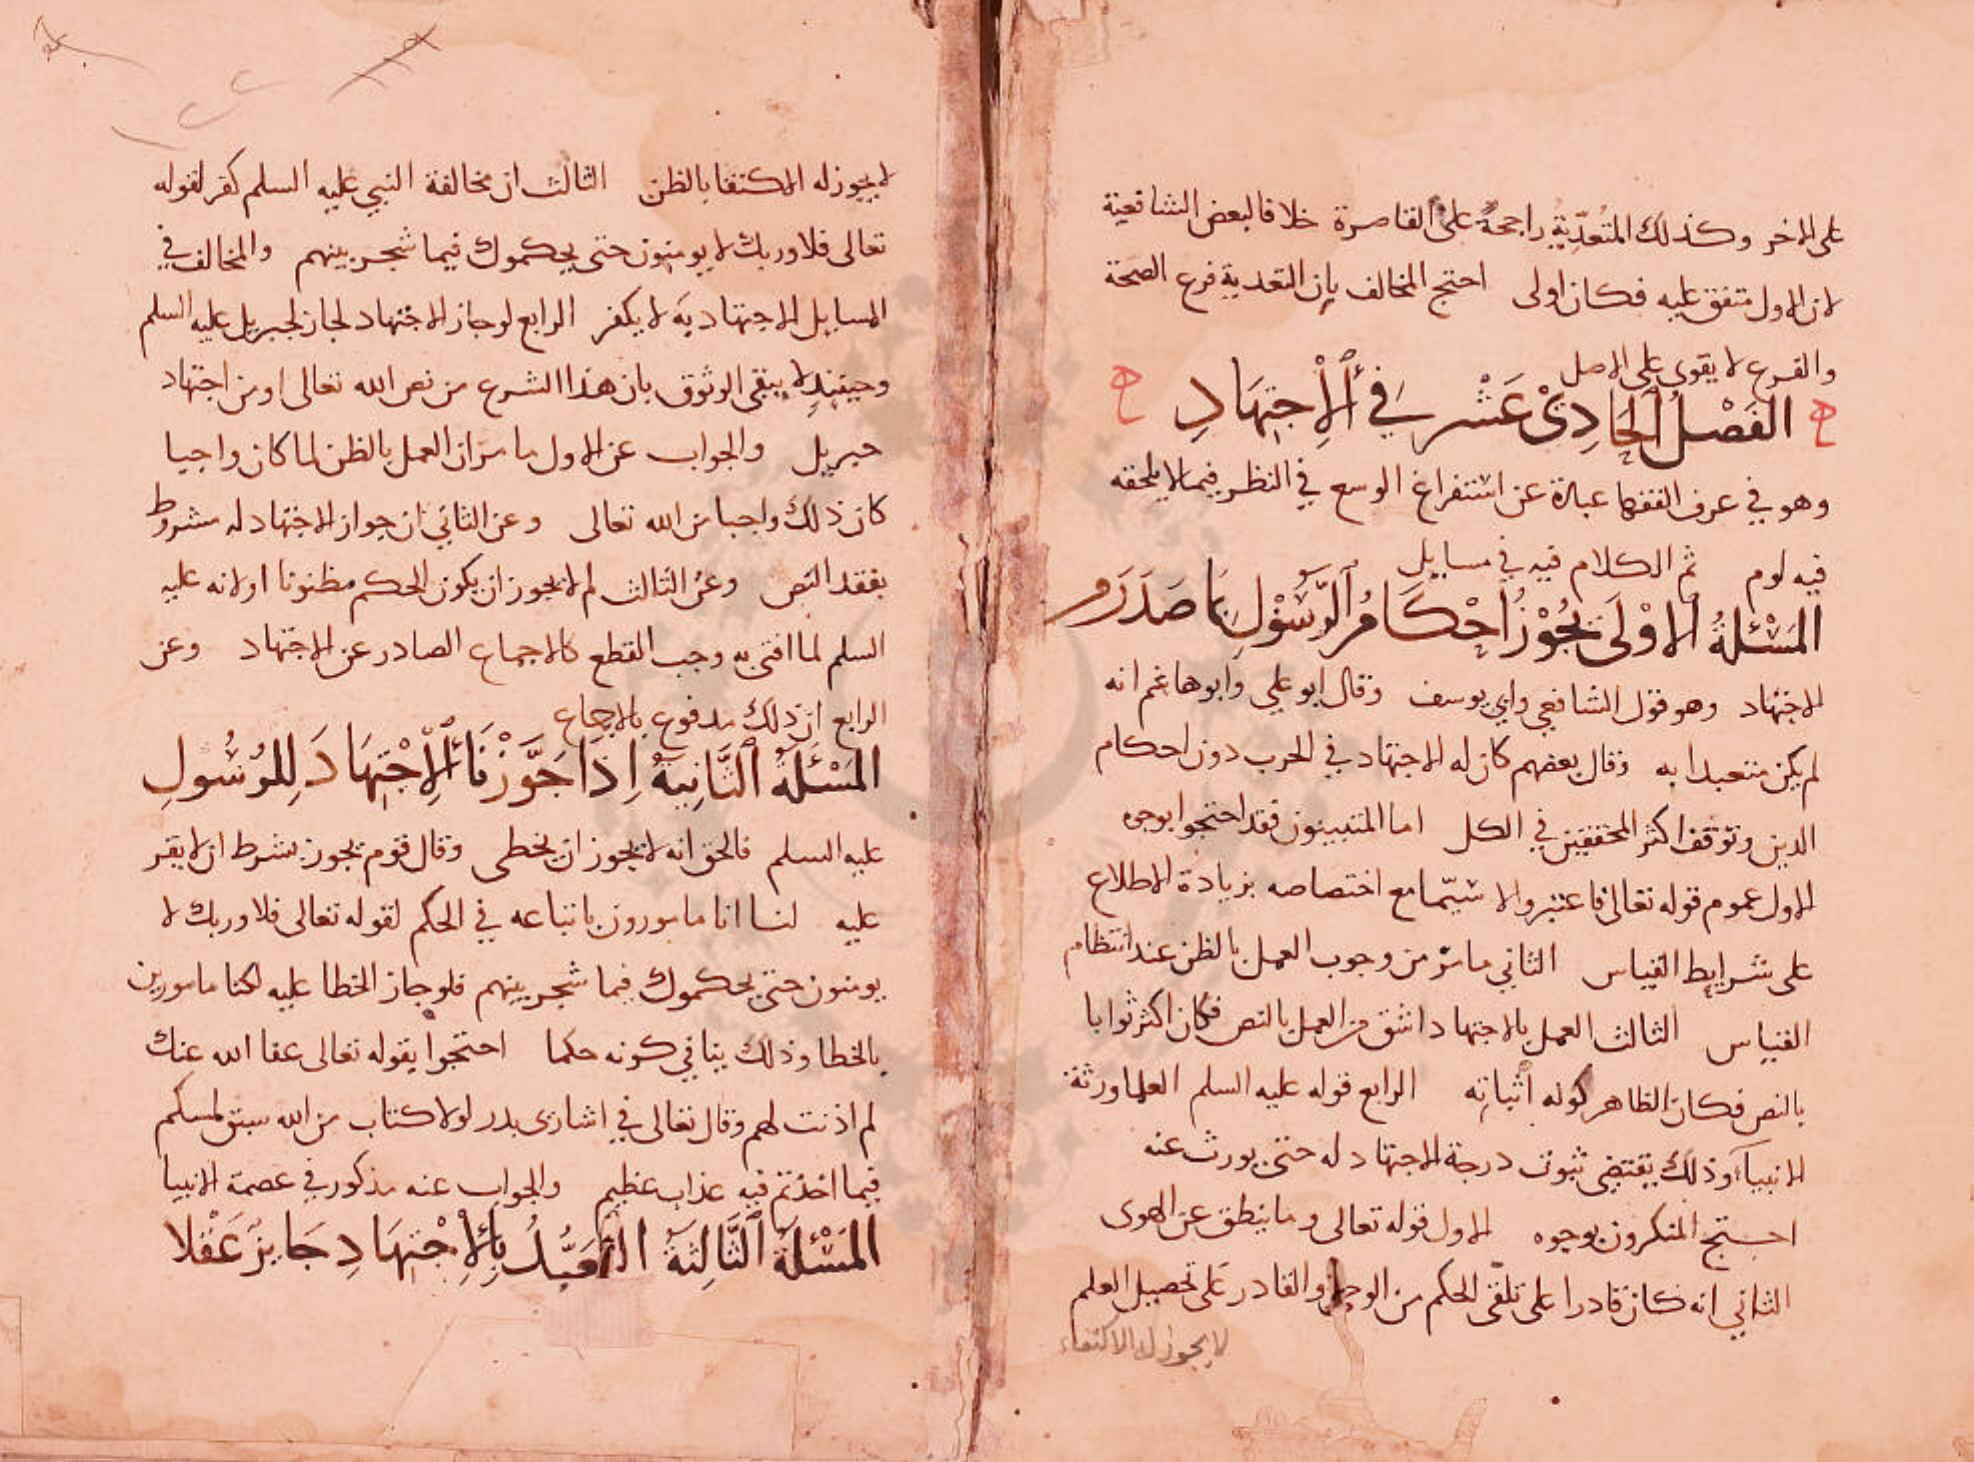 على الاخر وكذلك المتعدّية راجحة على القاصرة خلافا لبعض الشافعية
لان الاول متفق عليه فكان اولى احتج المخالف بان التعدية فرع الصحة
والفرع لا يقوى على الاصل
الفَصْلُ الحَادِيْ عَشْر في الاِجْتِهَادِ
وهو في عرف الفقها عبارة عن استفراغ الوسع في النظر فيما لا يلحقه
فيه لوم ثم الكلام فيه في مسايل
المَسْئلةُ الاوْلَى يجُوْزُ احْكَامُ الرَّسُوْلِ مَا صَدَرَ
الاجتهاد وهو قول الشافعي وابي يوسف وقال ابو علي وابو هاشم انه
لم يكن متعبدا به وقال بعضهم كان له الاجتهاد في الحرب دون احكام
الدين وتوقف اكثر المحققين في الكل اما المثبتون فقد احتجوا بوجوه
الاول عموم قوله تعالى فاعتبروا لا سيّما مع اختصاصه بزيادة الاطلاع
على شرايط القياس الثاني ما مرّ من وجوب العمل بالظن عند انتظام
القياس الثالث العمل بالاجتهاد اشق من العمل بالنص فكان اكثر ثوابا
بالنص فكان الظاهر كونه اثباته الرابع قوله عليه السلم العلما ورثة
الانبياء وذلك يقتضي ثبوت درجة الاجتهاد له حتى يورث عنه
احتج المنكرون بوجوه الاول قوله تعالى وما ينطق عن الهوى
الثاني انه كان قادرا على تلقّى الحكم من الوحي والقادر على تحصيل العلم
لا يجوز له الاكتفاء
لا يجوز له المكتفا بالظن الثالث ان مخالفة النبي عليه السلم كفر لقوله
تعالى فلا وربك لا يومنون حتى يحكموك فيما شجر بينهم والمخالف في
المسايل الاجتهادية لا يكفر الرابع لو جاز الاجتهاد لجاز لجبريل عليه السلم
وحينئذ لا يبقى الوثوق بان هذا الشرع من نص الله تعالى او من اجتهاد
جبريل والجواب عن الاول ما مرّ ان العمل بالظن لما كان واجبا
كان ذلك واجبا من الله تعالى وعن الثاني ان جواز الاجتهاد له مشروط
بفقد النص وعن الثالث لم لا يجوز ان يكون الحكم مظنونا او لانه عليه
السلم لما افتى به وجب القطع كالاجماع الصادر عن الاجتهاد وعن
الرابع ان ذلك مدفوع بالاجماع
المَسْئَلَةُ الثَّانِيَةُ اِذَا جَوَّزْنَا الاِجْتِهَادَ لِلرسُولِ
عليه السلم فالحق انه لا يجوز ان يخطى وقال قوم يجوز بشرط ان لا يقر
عليه لنا انا مامورون باتباعه في الحكم لقوله تعالى فلا وربك لا
يومنون حتى يحكموك فيما شجر بينهم فلو جاز الخطا عليه لكنا مامورين
بالخطا وذلك ينافي كونه حكما احتجوا بقوله تعالى عفا الله عنك
لم اذنت لهم وقال تعالى في اسارى بدر لولا كتاب من الله سبق لمسكم
فيما اخذتم فيه عذاب عظيم والجواب عنه مذكور في عصمة الانبيا
المَسْئلةُ الثَّالِثَةُ التعَبُّدُ بِالاِجْتِهَادِ جَايز عَقْلا